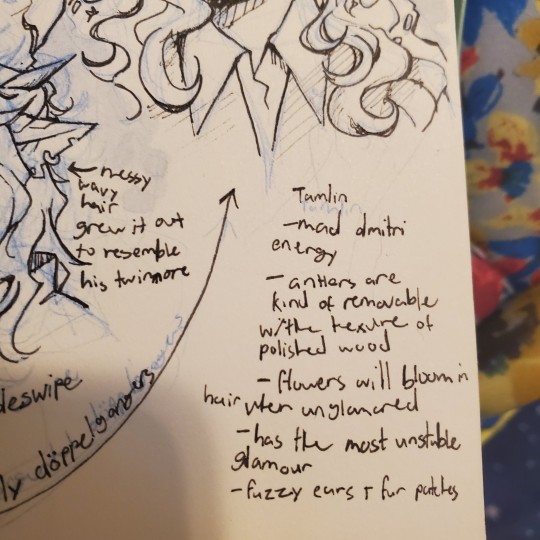 messy
wavy
hair
grew it out
to resemble
his twin more
Tamlin
-mad dmitri
energy
- antlers are
kind of removable
w/the texure of
polished wood
- flowers will bloom in
hair when unglamored
-has the most unstable
glamour
-fuzzy ears + fur patches
deswipe
ly döppelgangers